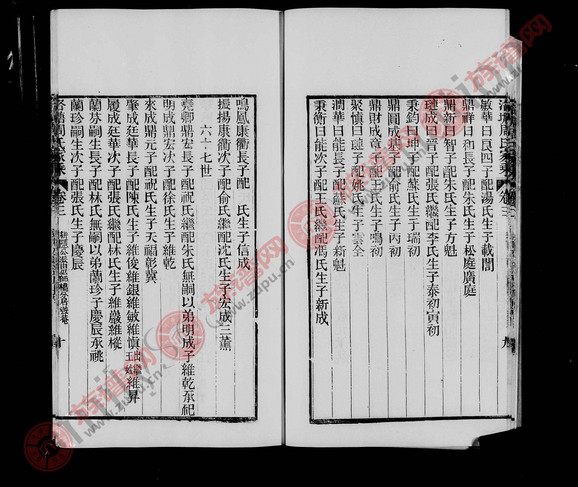 敏華曰良四子配湯氏生子載閣
鼎祥曰和長子配朱氏生子松庭廣庭
鼎新曰智子配朱氏生子方魁
璉成曰信子配張氏繼配李氏生子泰初寅初
秉鈞曰坤子配蘇氏生子瑞初
鼎圓成基子配俞氏生子丙初
鼎財成章子配王氏生子鳴初
聚慎曰璉子配姚氏生子
潤華曰能長子配蘇氏生子新魁
秉衡曰能次子配王氏繼配馮氏生子新成
鳴鳳康衢長子配 氏生子信成
振揚康衢次子配俞氏繼配沈氏生子宏成三薰
六十七世
堯卿鼎宏長子配祝氏繼配朱氏無嗣以弟明成子維乾承祀
明成鼎宏次子配徐氏生子維乾
來成鼎元子配祝氏生子天福彰冀
肇成廷華長子配陳氏生子維俊維銀維敏維慎出繼王姓維昇
履成廷華次子配張氏繼配林氏生子維嚴維樅
蘭芬嗣生長子配林氏無嗣以弟蘭珍子慶辰承祧
蘭珍嗣生次子配張氏生子慶辰
周氏家乘 卷三 十
周氏家乘 卷三 九
族譜網
www.zupu.cn